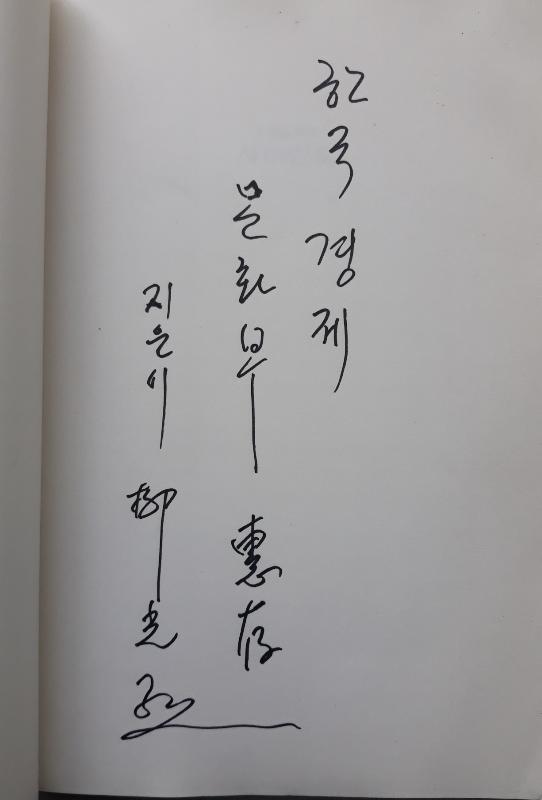 한국경제
문화부 惠存
지은이 柳光